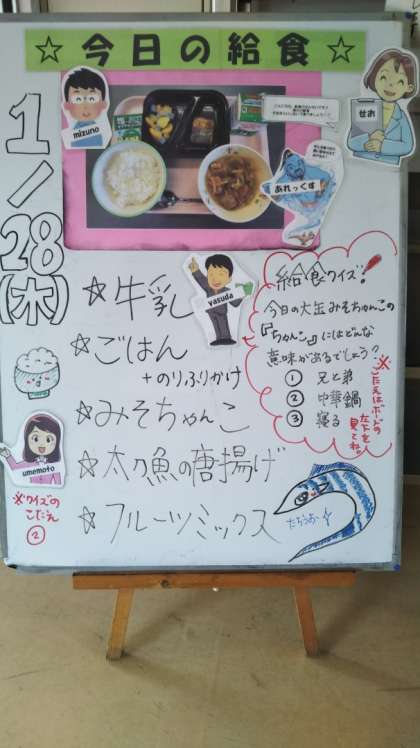 ☆今日の給食☆
mizuno
せお
あれっくす
1/28(木)
yasuda
☆牛乳
☆ごはん
+のりふりかけ
☆みそちゃんこ
☆太刀魚の唐揚げ
☆フルーツミックス
給食クイズ!
今日の大缶みそちゃんこの
『ちゃんこ』にはどんな
意味があるでしょう?
① 兄と弟
② 中華鍋
③ 寝る
※こたえはボードの
左下を
見てね。
umemoto
※クイズの
こたえ
②
たちうおー